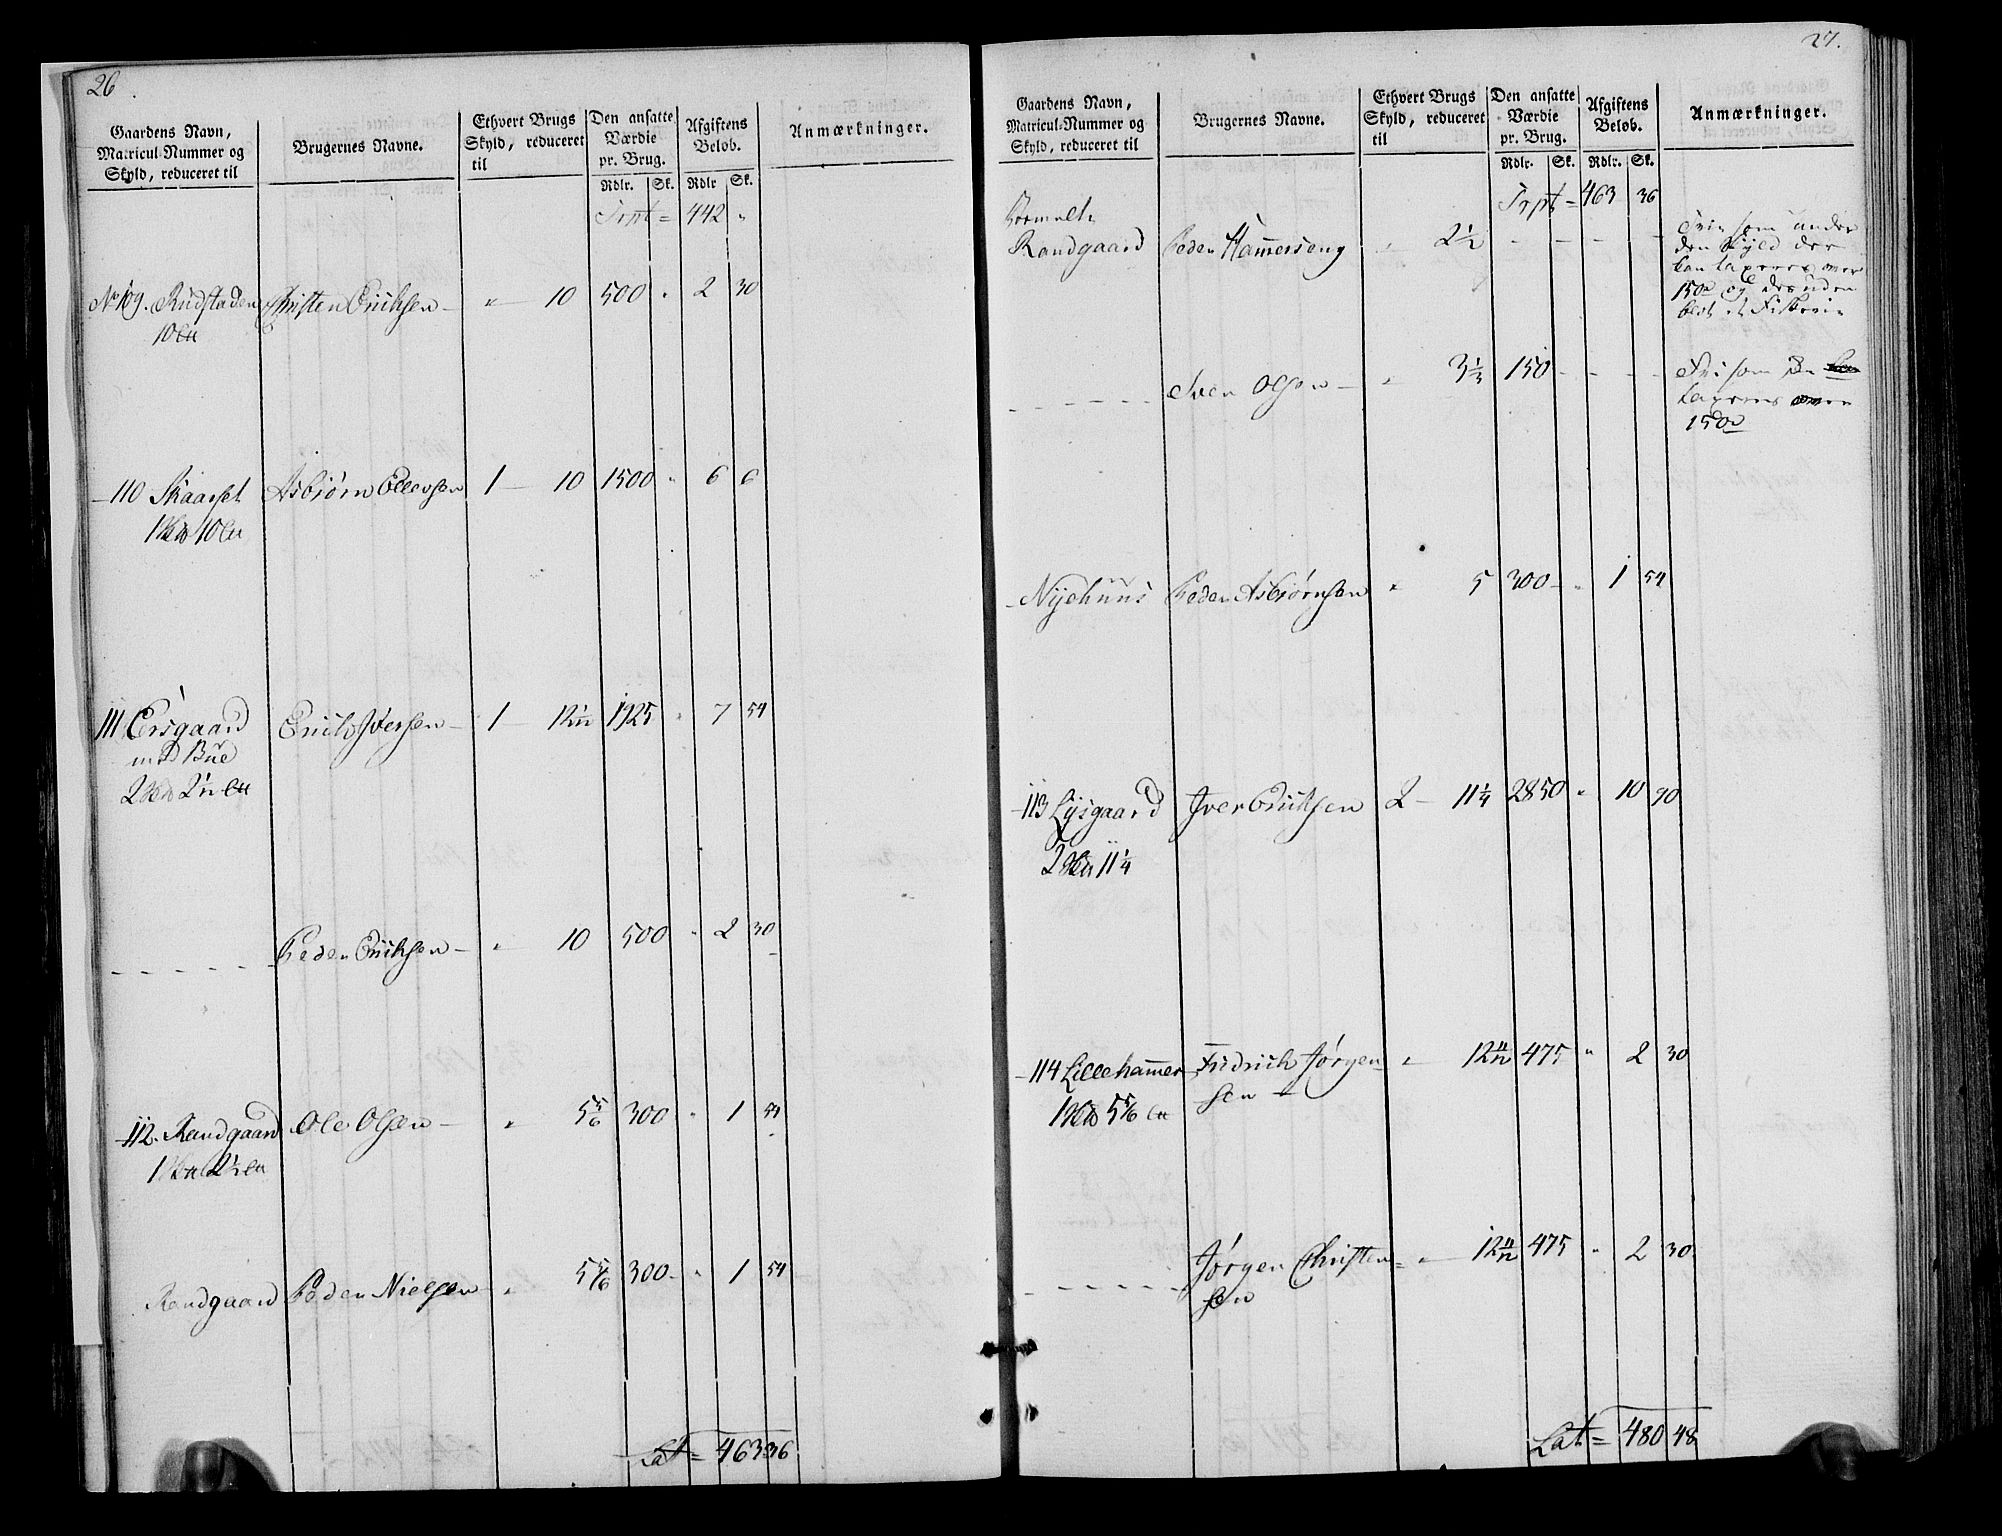 26.
Gaardens Navn,
Matricul-Nummer og
Skyld, reduceret til
Brugernes Navne.
Ethvert Brugs
Skyld, reduceret
til
Den ansatte
Værdie
pr. Brug.
Rdlr. Sk.
Afgiftens
Beløb.
Rdlr Sk.
Anmærkninger.
Trpt = 442 "
No 109. Rudstaden Christen Erichsen - " - 10 500 " 2 30
10
110 Skaarset Asbiørn Ellevsen 1 - 10 1500 " 6 6
1 10
111 Ersgaard Erich Iversen - 1 - 12 1/12 1925 " 7 54
med Bue
2 2 1/12
- - - - - - Peder Erichsen - " 10 500 " 2 30
112. Randgaard Ole Olsen - " 5 5/6 300 " 1 54
1 2 1/2
Randgaard Peder Nielsen " 5 5/6 300 - " 1 54
Lat = 463 36
27.
Gaardens Navn,
Matricul-Nummer og
Skyld, reduceret til
Brugernes Navne.
Ethvert Brugs
Skyld, reduceret
til
Den ansatte
Værdie
pr. Brug.
Rdlr. Sk.
Afgiftens
Beløb.
Rdlr. Sk.
Anmærkninger.
Trpt = 463 36
Randgaard Peder Hammerseng " 2 1/2 - - - -
Fri som under
den Skyld der
kan taxeres over
150 og desuden
blot et Fiskerie
- - - - - - Sven Olsen - " 3 1/3 150 - - - -
Fri som
taxeres
150
Nyehuus Peder Asbiørnsen " 5 300 - " 1 54
113 Lysgaard Iver Erichsen 2 - 11 1/4 2850 " 10 90
2 11 1/4
114 Lillehammer Fridrich Jørgen= " 12 11/12 475 " 2 30
1 5 5/6 sen -
- - - - - - Jørgen Christen= " 12 11/12 475 " 2 30
sen
Lat = 480 48